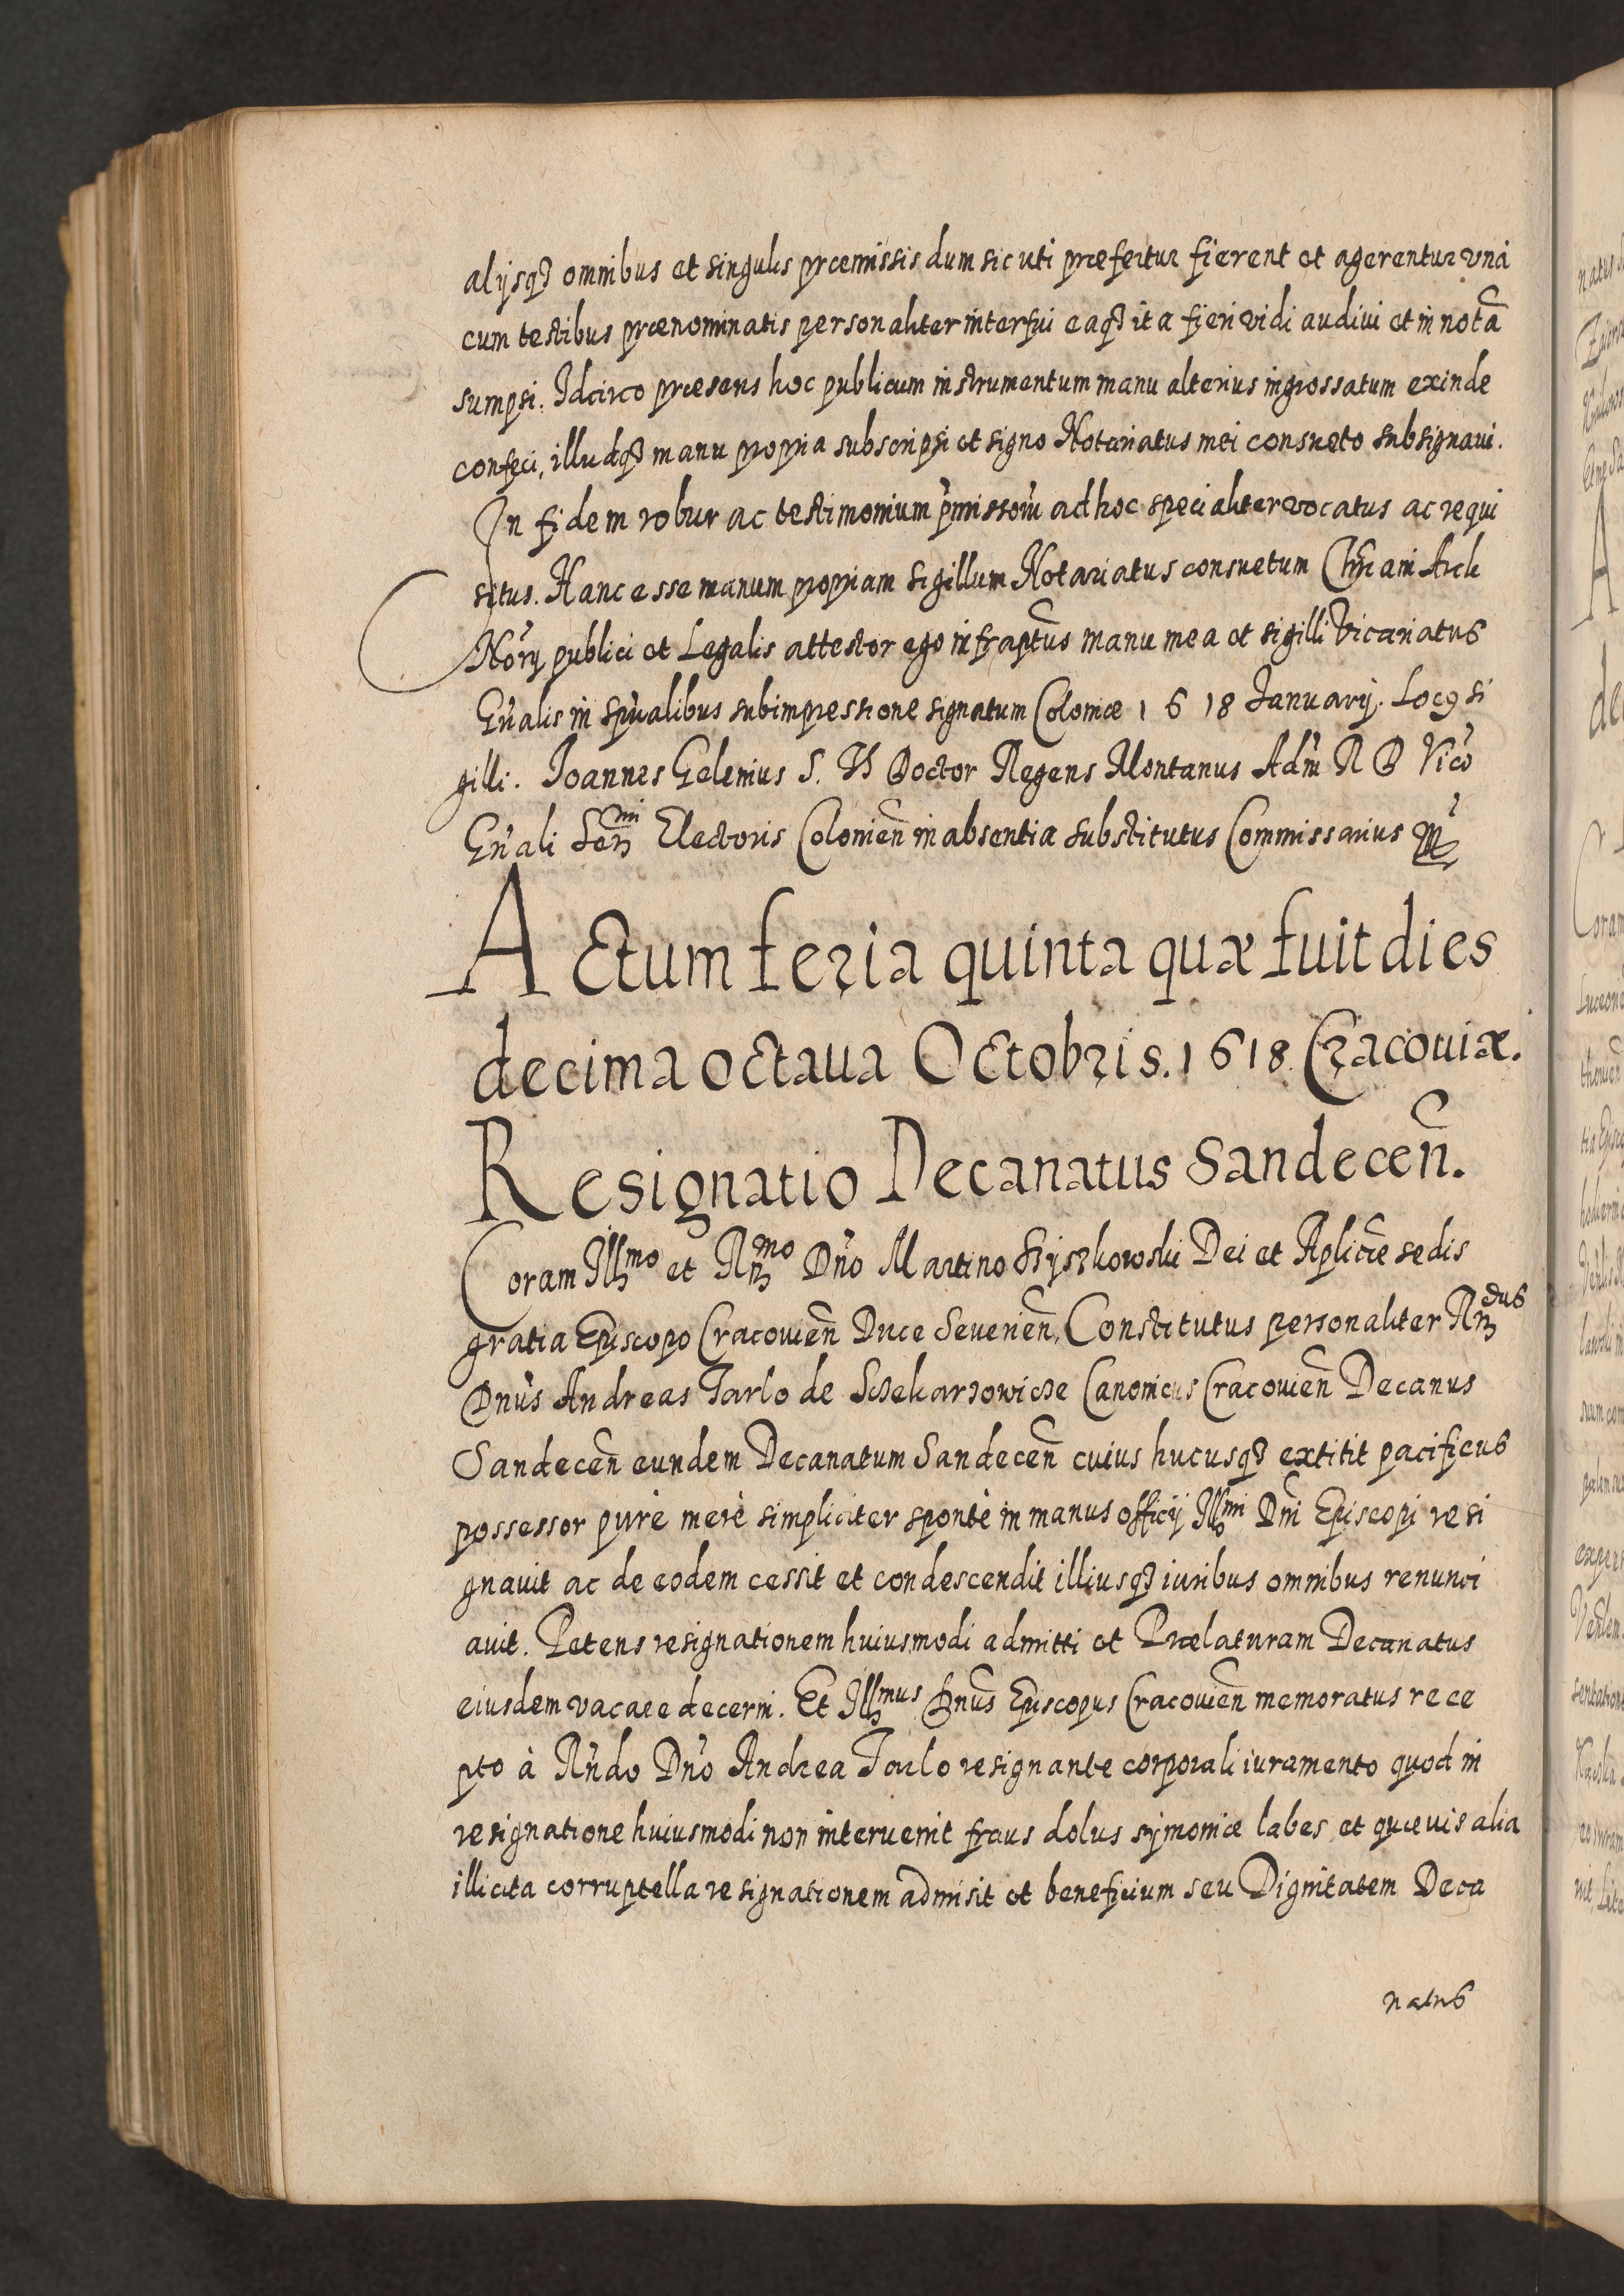 alijsqȝ omnibus et singulis præmissis dum sic uti præfertur fierent et agerentur unà
cum testibus prænominatis personaliter interfui eaqȝ ita fieri vidi audivi et in notā
sumpsi. Idcirco præsens hoc publicum instrumentum manu alterius ingrossatum exinde
confeci, illudqȝ manu propria subscripsi et signo Notariatus mei consueto subsignavi.
In fidem robur ac testimonium p̃missorũ ad hoc specialiter vocatus ac requi
situs. Hanc esse manum propriam sigillum Notariatus consuetum Chr̃iani Arck
Nõrij publici et Legalis attestor ego infrapt̃us manu mea et sigilli Vicariatus
Gñalis in Sp̃ualibus subimpressione signatum Coloniæ 1618 Januarij. Locꝯ si
gilli. Joannes Gelenius S. Doctor Regens Montanus Adm̃ R D Vicõ
Gñali Ser̃mi Electoris Colonień in absentia substitutus Commissarius mp̃
Actum feria quinta quæ fuit dies
decima octaua Octobris. 1618. Cracouiæ.
Resignatio Decanatus Sandeceñ.
Coram Illmo et Rmo Dño Martino Szyszkowski Dei et Aplicæ sedis
gratia Episcopo Cracouieñ Duce Seuerieñ, Constitutus personaliter Rndus
Dñus Andreas Tarlo de Sczekarzowicze Canonicus Cracouieñ Decanus
Sandeceñ eundem Decanatum Sandeceñ cuius hucusqȝ extitit pacificus
possessor purè merè simpliciter spontè in manus officij Illmi Dñi Episcopi resi
gnauit ac de eodem cessit et condescendit illiusqȝ iuribus omnibus renunci
auit. Petens resignationem huiusmodi admitti et Prælaturam Decanatus
eiusdem vacare decerni. Et Illmus Dñus Episcopus Cracouieñ memoratus rece
pto à Rñdo Dño Andrea Tarlo resignante corporali iuramento quod in
resignatione huiusmodi non interuenit fraus dolus symoniæ labes et quæuis alia
illicita corruptella resignationem admisit et beneficium seu Dignitatem Deca
natus